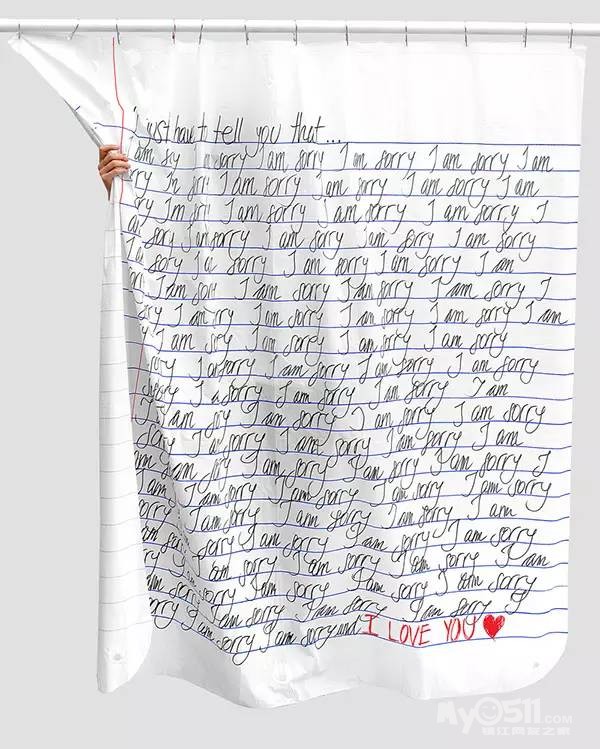 I just have to tell you that...
am sorry I am sorry I am sorry I am
I am sorry I am sorry I am sorry I am
I am sorry I am sorry I am sorry I
I am sorry I am sorry I am sorry
sorry I am sorry I am sorry I am
I am sorry I am sorry I am sorry I
I am sorry I am sorry I am sorry I am
I am sorry I am sorry I am sorry
sorry I am sorry I am sorry I am sorry
sorry I am sorry I am sorry I am
I am sorry I am sorry I am sorry
sorry I am sorry I am sorry I am
am I am sorry I am sorry I am sorry I
I am sorry I am sorry I am sorry I am sorry
I am sorry I am sorry I am
sorry I am sorry I am sorry I am sorry
am sorry I am sorry I am sorry I am
sorry I am sorry I am sorry I am sorry
sorry I am sorry I am sorry I am sorry I
am sorry I am sorry and I LOVE YOU
My0511.COM
镇江网友之家